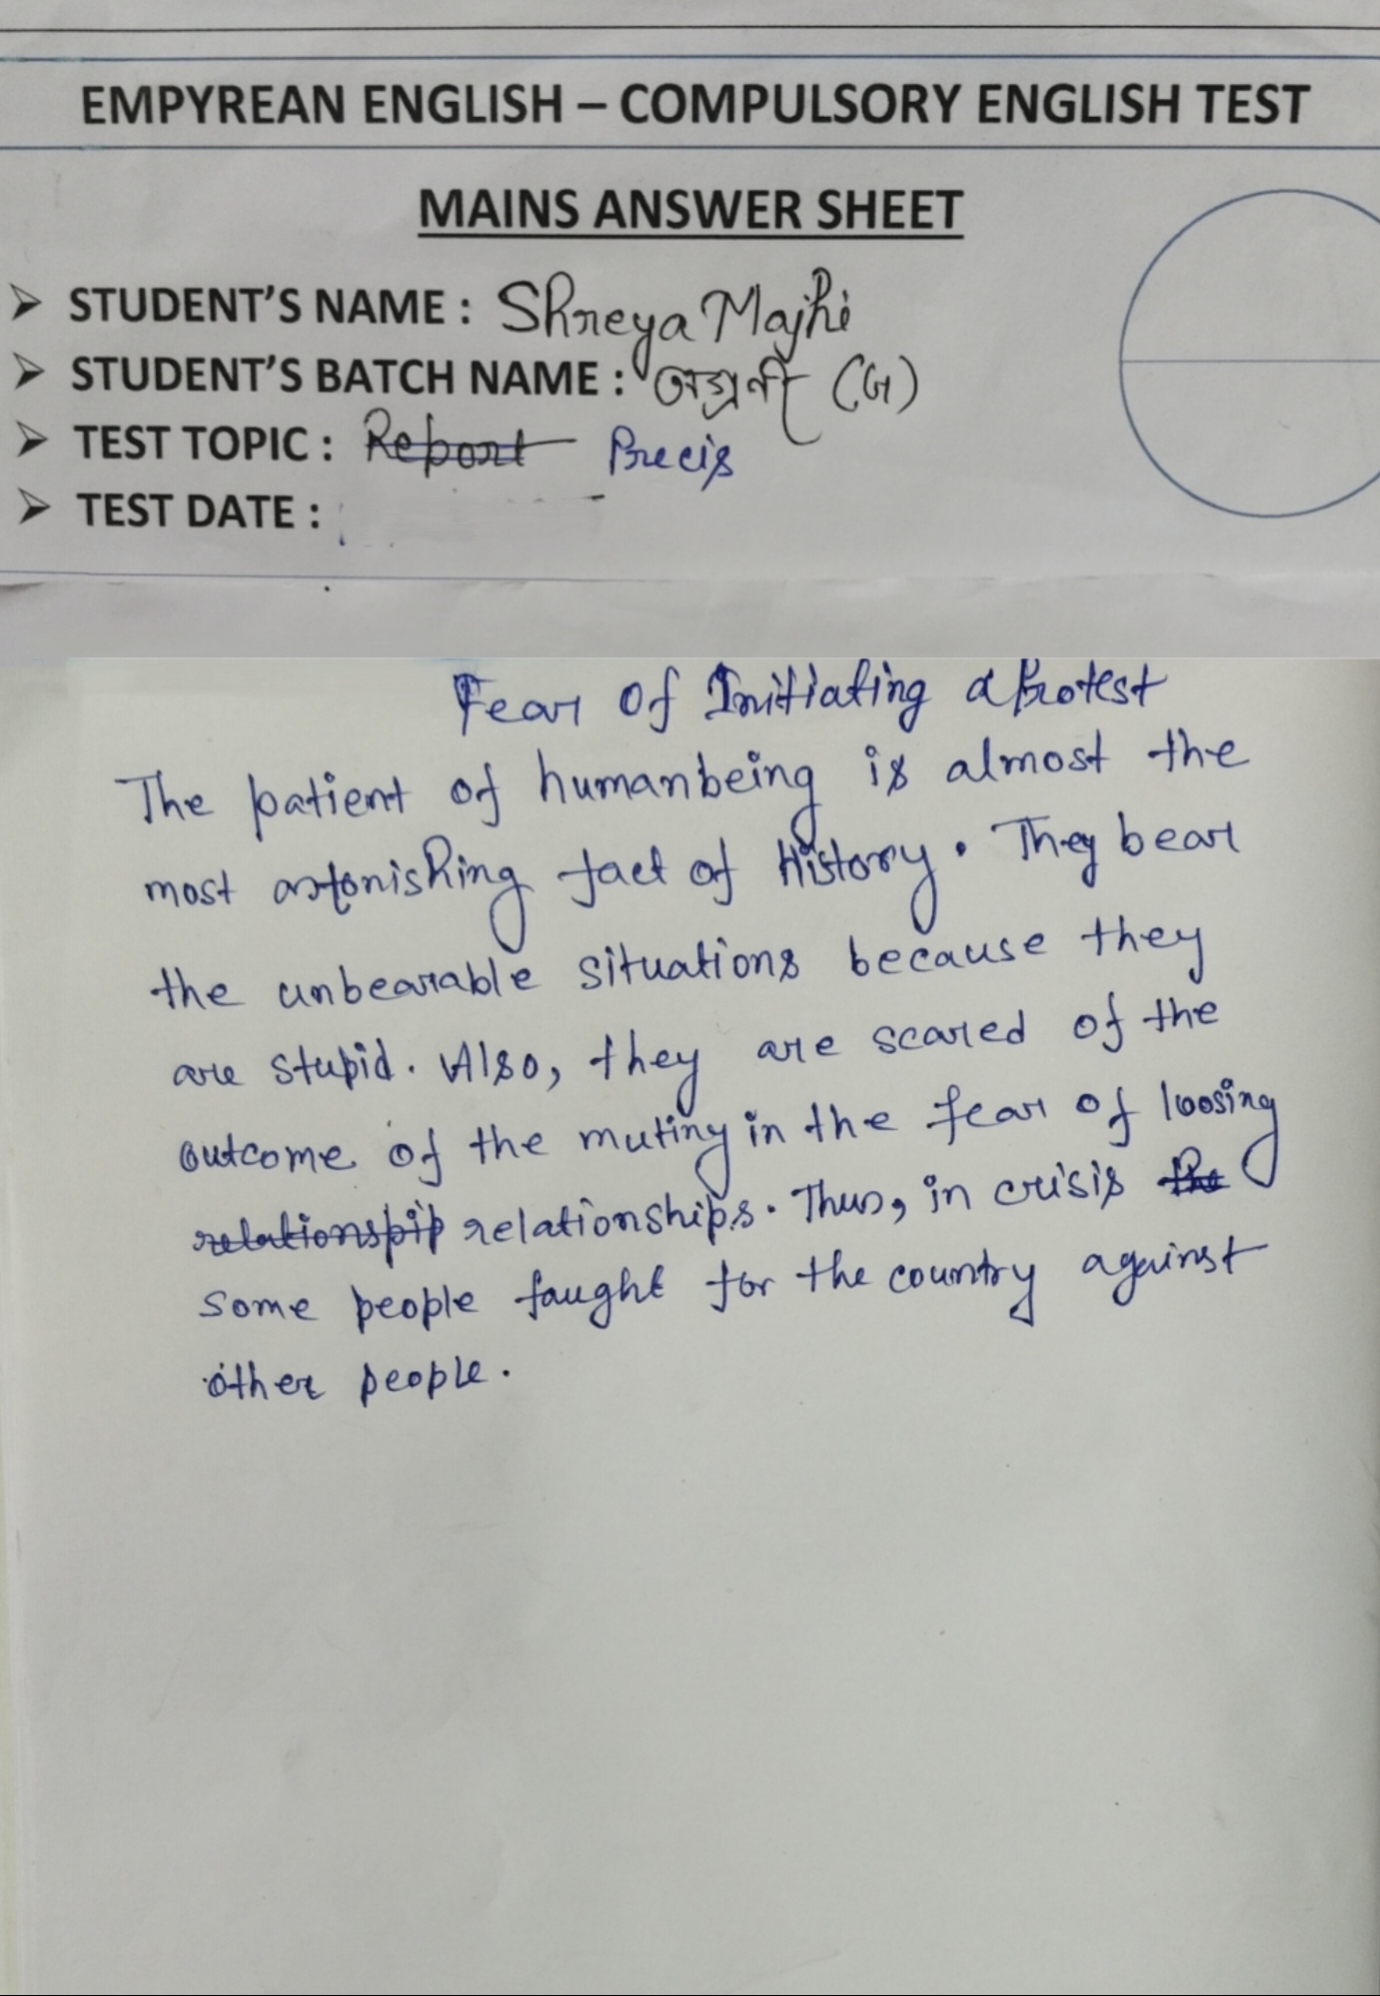 EMPYREAN ENGLISH – COMPULSORY ENGLISH TEST
MAINS ANSWER SHEET
➤ STUDENT'S NAME : Shreya Majhi
➤ STUDENT'S BATCH NAME : অগ্রনী (G)
➤ TEST TOPIC : Report Precis
➤ TEST DATE :
Fear Of Initiating a Protest
The patient of humanbeing is almost the
most astonishing fact of History. They bear
the unbearable situations because they
are stupid. Also, they are scared of the
outcome of the mutiny in the fear of loosing
relationspip relationships. Thus, in crisis the
some people faught for the country against
other people.